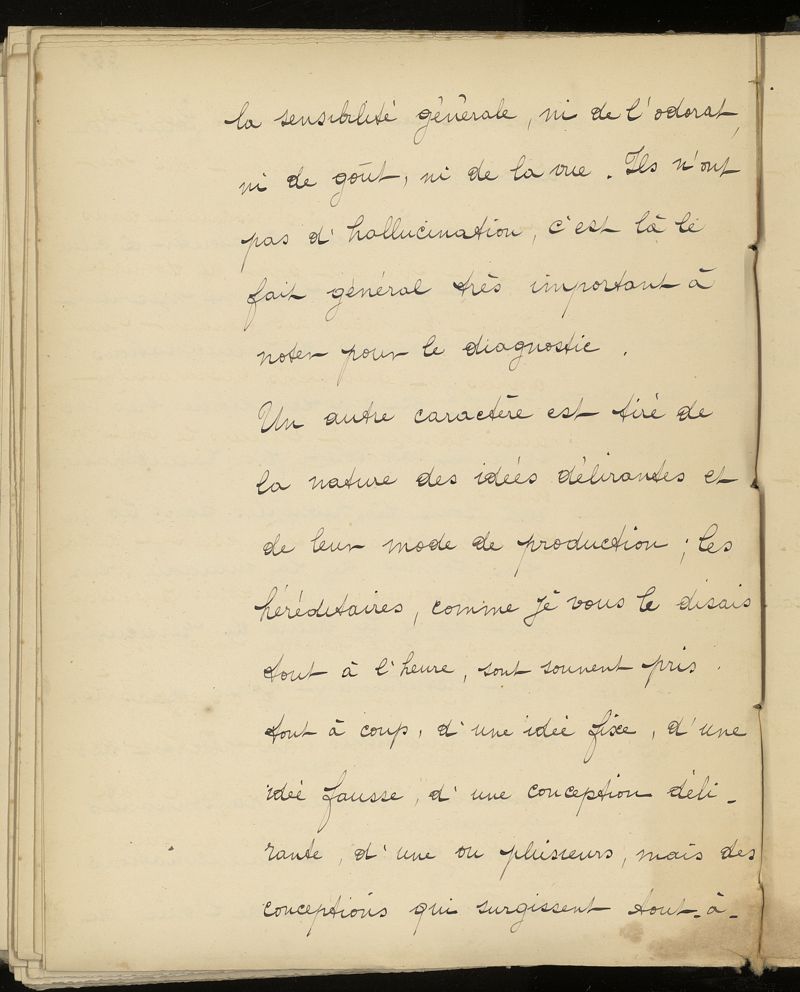 la sensibilité générale, ni de l'odorat,
ni de goût, ni de la vue. Ils n'ont
pas d'hallucination, c'est là le
fait général très important à
noter pour le diagnostic.
Un autre caractère est tiré de
la nature des idées délirantes et
de leur mode de production ; les
héréditaires, comme je vous le disais
tout à l'heure, sont souvent pris
tout à coup, d'une idée fixe, d'une
idée fausse, d'une conception déli-
rante, d'une ou plusieurs, mais des
conceptions qui surgissent tout-à-